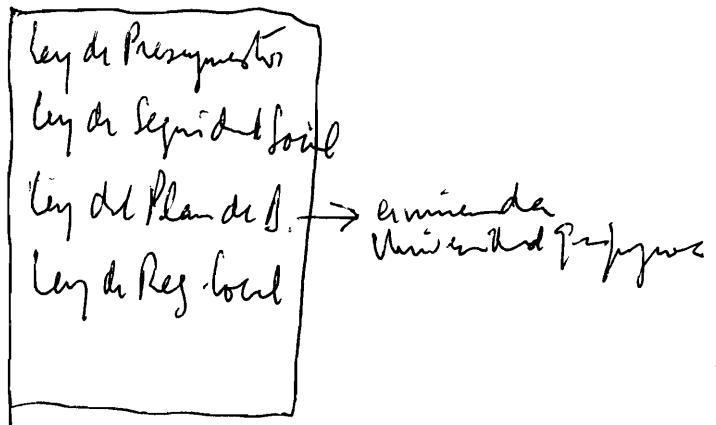 Ley de Presupuestos
Ley de Seguridad Social
Ley del Plan de B. → enmienda
Universidad
Ley de Reg. Local